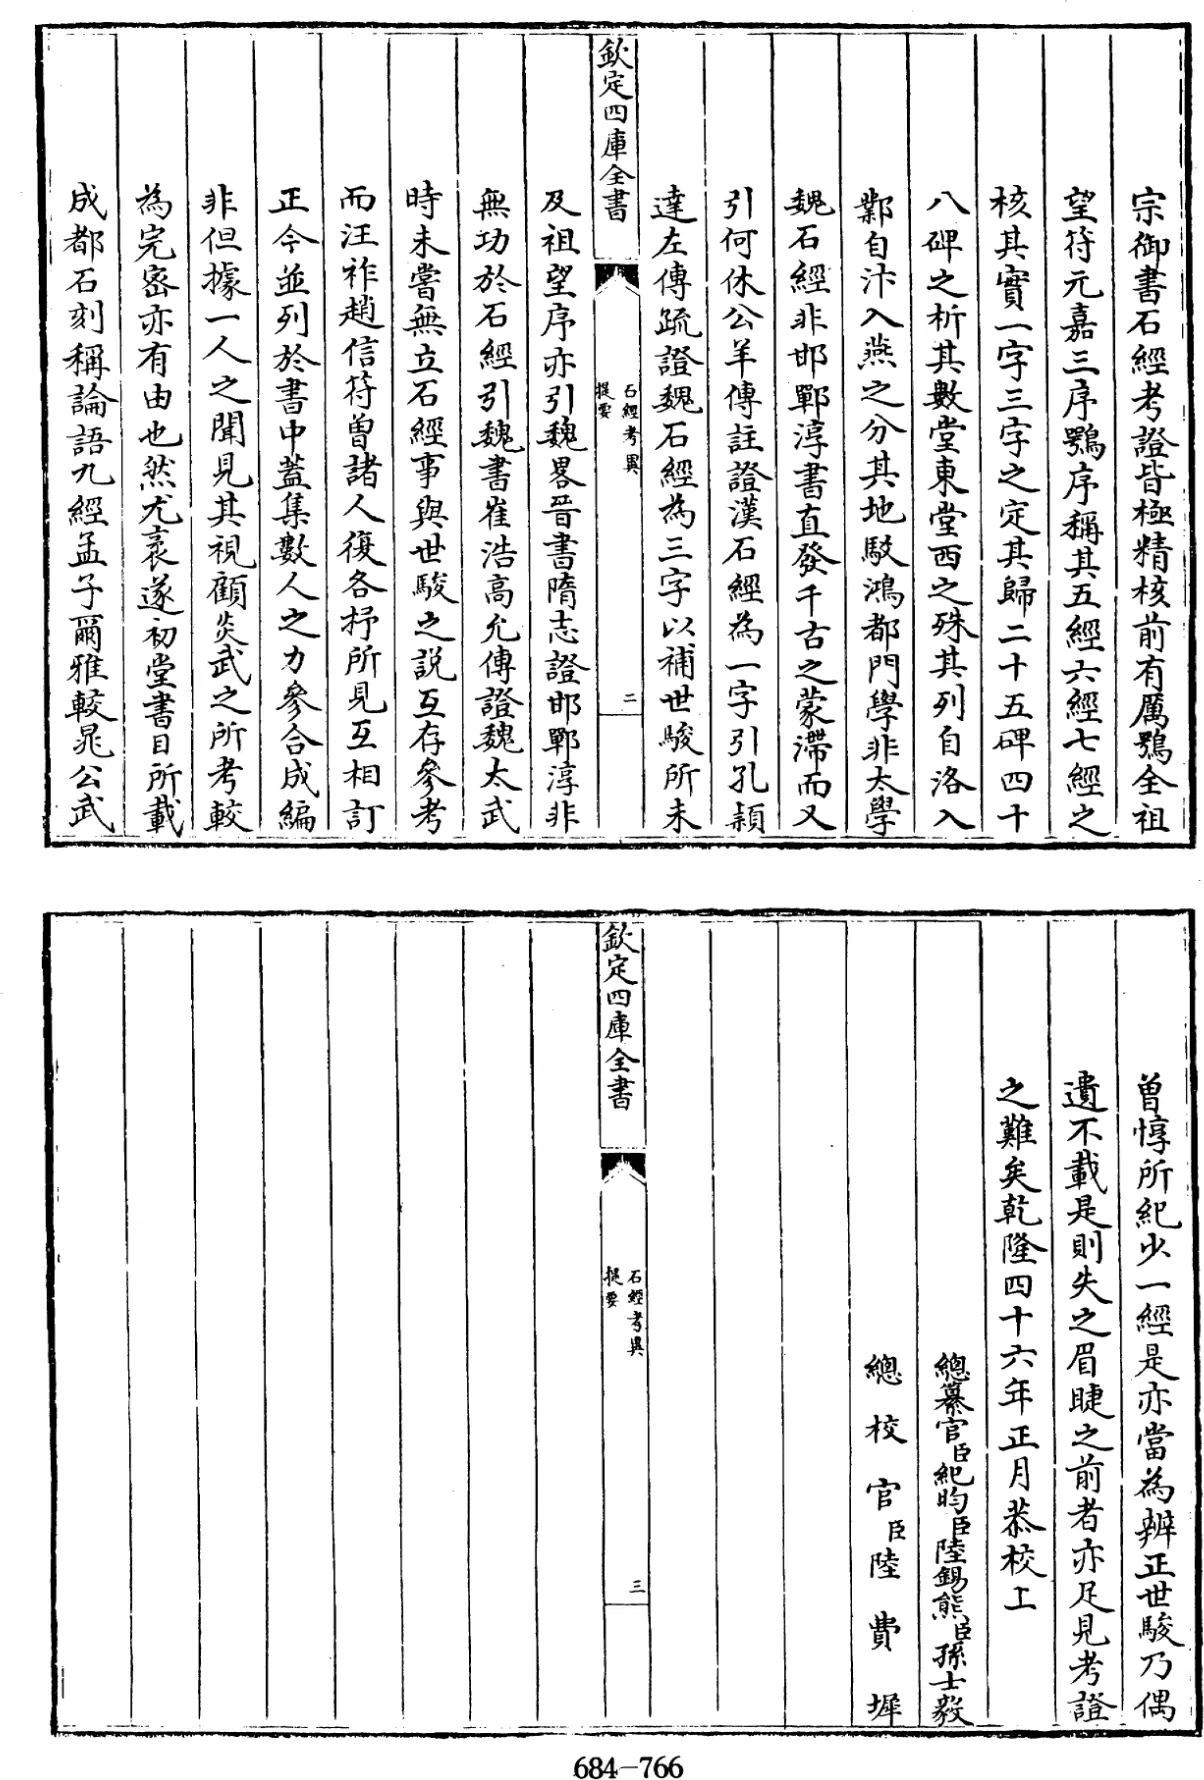 宗御書石經考證皆極精核前有厲鶚全祖
望符元嘉三序鶚序稱其五經六經七經之
核其實一字三字之定其歸二十五碑四十
八碑之析其數堂東堂西之殊其列自洛入
鄴自汴入燕之分其地駁鴻都門學非太學
魏石經非邯鄲淳書直發千古之蒙滯而又
引何休公羊傳註證漢石經為一字引孔穎
達左傳疏證魏石經為三字以補世駿所未
欽定四庫全書
石經考異
提要
二
及祖望序亦引魏畧晉書隋志證邯鄲淳非
無功於石經引魏書崔浩高允傳證魏太武
時未嘗無立石經事與世駿之説互存參考
而汪祚趙信符曾諸人復各抒所見互相訂
正今並列於書中蓋集數人之力參合成編
非但據一人之聞見其視顧炎武之所考較
為完密亦有由也然尤袤遂初堂書目所載
成都石刻稱論語九經孟子爾雅較晁公武
曾惇所紀少一經是亦當為辨正世駿乃偶
遺不載是則失之眉睫之前者亦足見考證
之難矣乾隆四十六年正月恭校上
總纂官臣紀昀臣陸錫熊臣孫士毅
總校官臣陸費墀
欽定四庫全書
石經考異
提要
三
684-766